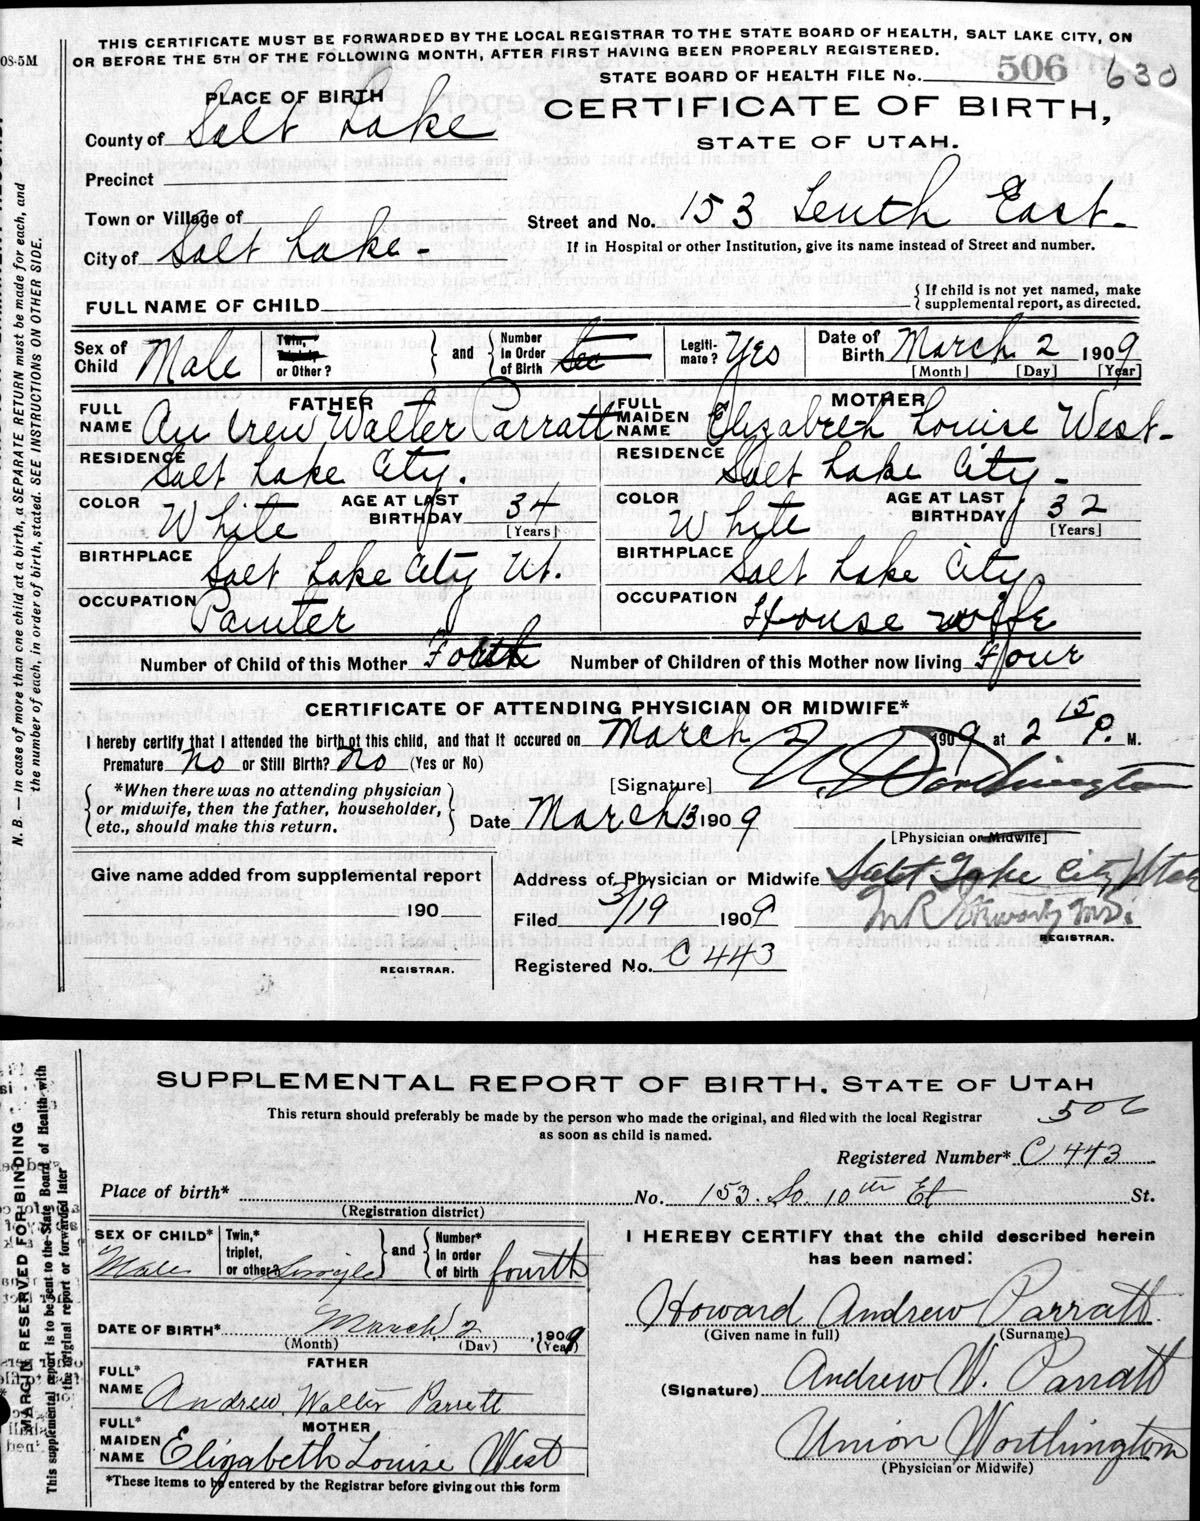 THIS CERTIFICATE MUST BE FORWARDED BY THE LOCAL REGISTRAR TO THE STATE BOARD OF HEALTH, SALT LAKE CITY, ON
OR BEFORE THE 5TH OF THE FOLLOWING MONTH, AFTER FIRST HAVING BEEN PROPERLY REGISTERED.
08-5M
STATE BOARD OF HEALTH FILE No. 506 630
PLACE OF BIRTH
CERTIFICATE OF BIRTH,
STATE OF UTAH.
County of Salt Lake
Precinct
Town or Village of
Street and No. 153 Tenth East-
City of Salt Lake-
If in Hospital or other Institution, give its name instead of Street and number.
FULL NAME OF CHILD
{If child is not yet named, make
supplemental report, as directed.
Sex of Child Male
Twin,
Triplet,
or Other?
} and {
Number
in Order
of Birth
Legiti-
mate? Yes
Date of
Birth March 2 1909
[Month] [Day] [Year]
FATHER
FULL NAME Andrew Walter Parratt
MOTHER
FULL MAIDEN NAME Elizabeth Louise West-
RESIDENCE Salt Lake City.
RESIDENCE Salt Lake City-
COLOR White AGE AT LAST BIRTHDAY 34 [Years]
COLOR White AGE AT LAST BIRTHDAY 32 [Years]
BIRTHPLACE Salt Lake City Ut.
BIRTHPLACE Salt Lake City
OCCUPATION Painter
OCCUPATION House wife
Number of Child of this Mother Forth Number of Children of this Mother now living Four
CERTIFICATE OF ATTENDING PHYSICIAN OR MIDWIFE*
I hereby certify that I attended the birth of this child, and that it occured on March 2 1909 at 2 15 P. M.
Premature no or Still Birth? no (Yes or No)
[Signature] U. Worthington
{*When there was no attending physician
or midwife, then the father, householder,
etc., should make this return.}
Date March 13 1909
[Physician or Midwife]
Give name added from supplemental report
190
REGISTRAR.
Address of Physician or Midwife Salt Lake City Utah
Filed 3/19 1909
REGISTRAR.
Registered No. C 443
N. B. — In case of more than one child at a birth, a SEPARATE RETURN must be made for each, and
the number of each, in order of birth, stated. SEE INSTRUCTIONS ON OTHER SIDE.
SUPPLEMENTAL REPORT OF BIRTH. STATE OF UTAH
This return should preferably be made by the person who made the original, and filed with the local Registrar
as soon as child is named.
506
Registered Number* C 443
Place of birth* No. 153 So. 10th Et St.
(Registration district)
SEX OF CHILD* Male
Twin,*
triplet,
or other? Single
} and {
Number*
in order
of birth fourth
DATE OF BIRTH* March 2, 1909
(Month) (Day) (Year)
FATHER
FULL* NAME Andrew Walter Parratt
MOTHER
FULL* MAIDEN NAME Elizabeth Louise West
*These items to be entered by the Registrar before giving out this form
I HEREBY CERTIFY that the child described herein
has been named:
Howard Andrew Parratt
(Given name in full) (Surname)
(Signature) Andrew W. Parratt
Union Worthington
(Physician or Midwife)
MARGIN RESERVED FOR BINDING
This supplemental report is to be sent to the State Board of Health with
the original report or forwarded later